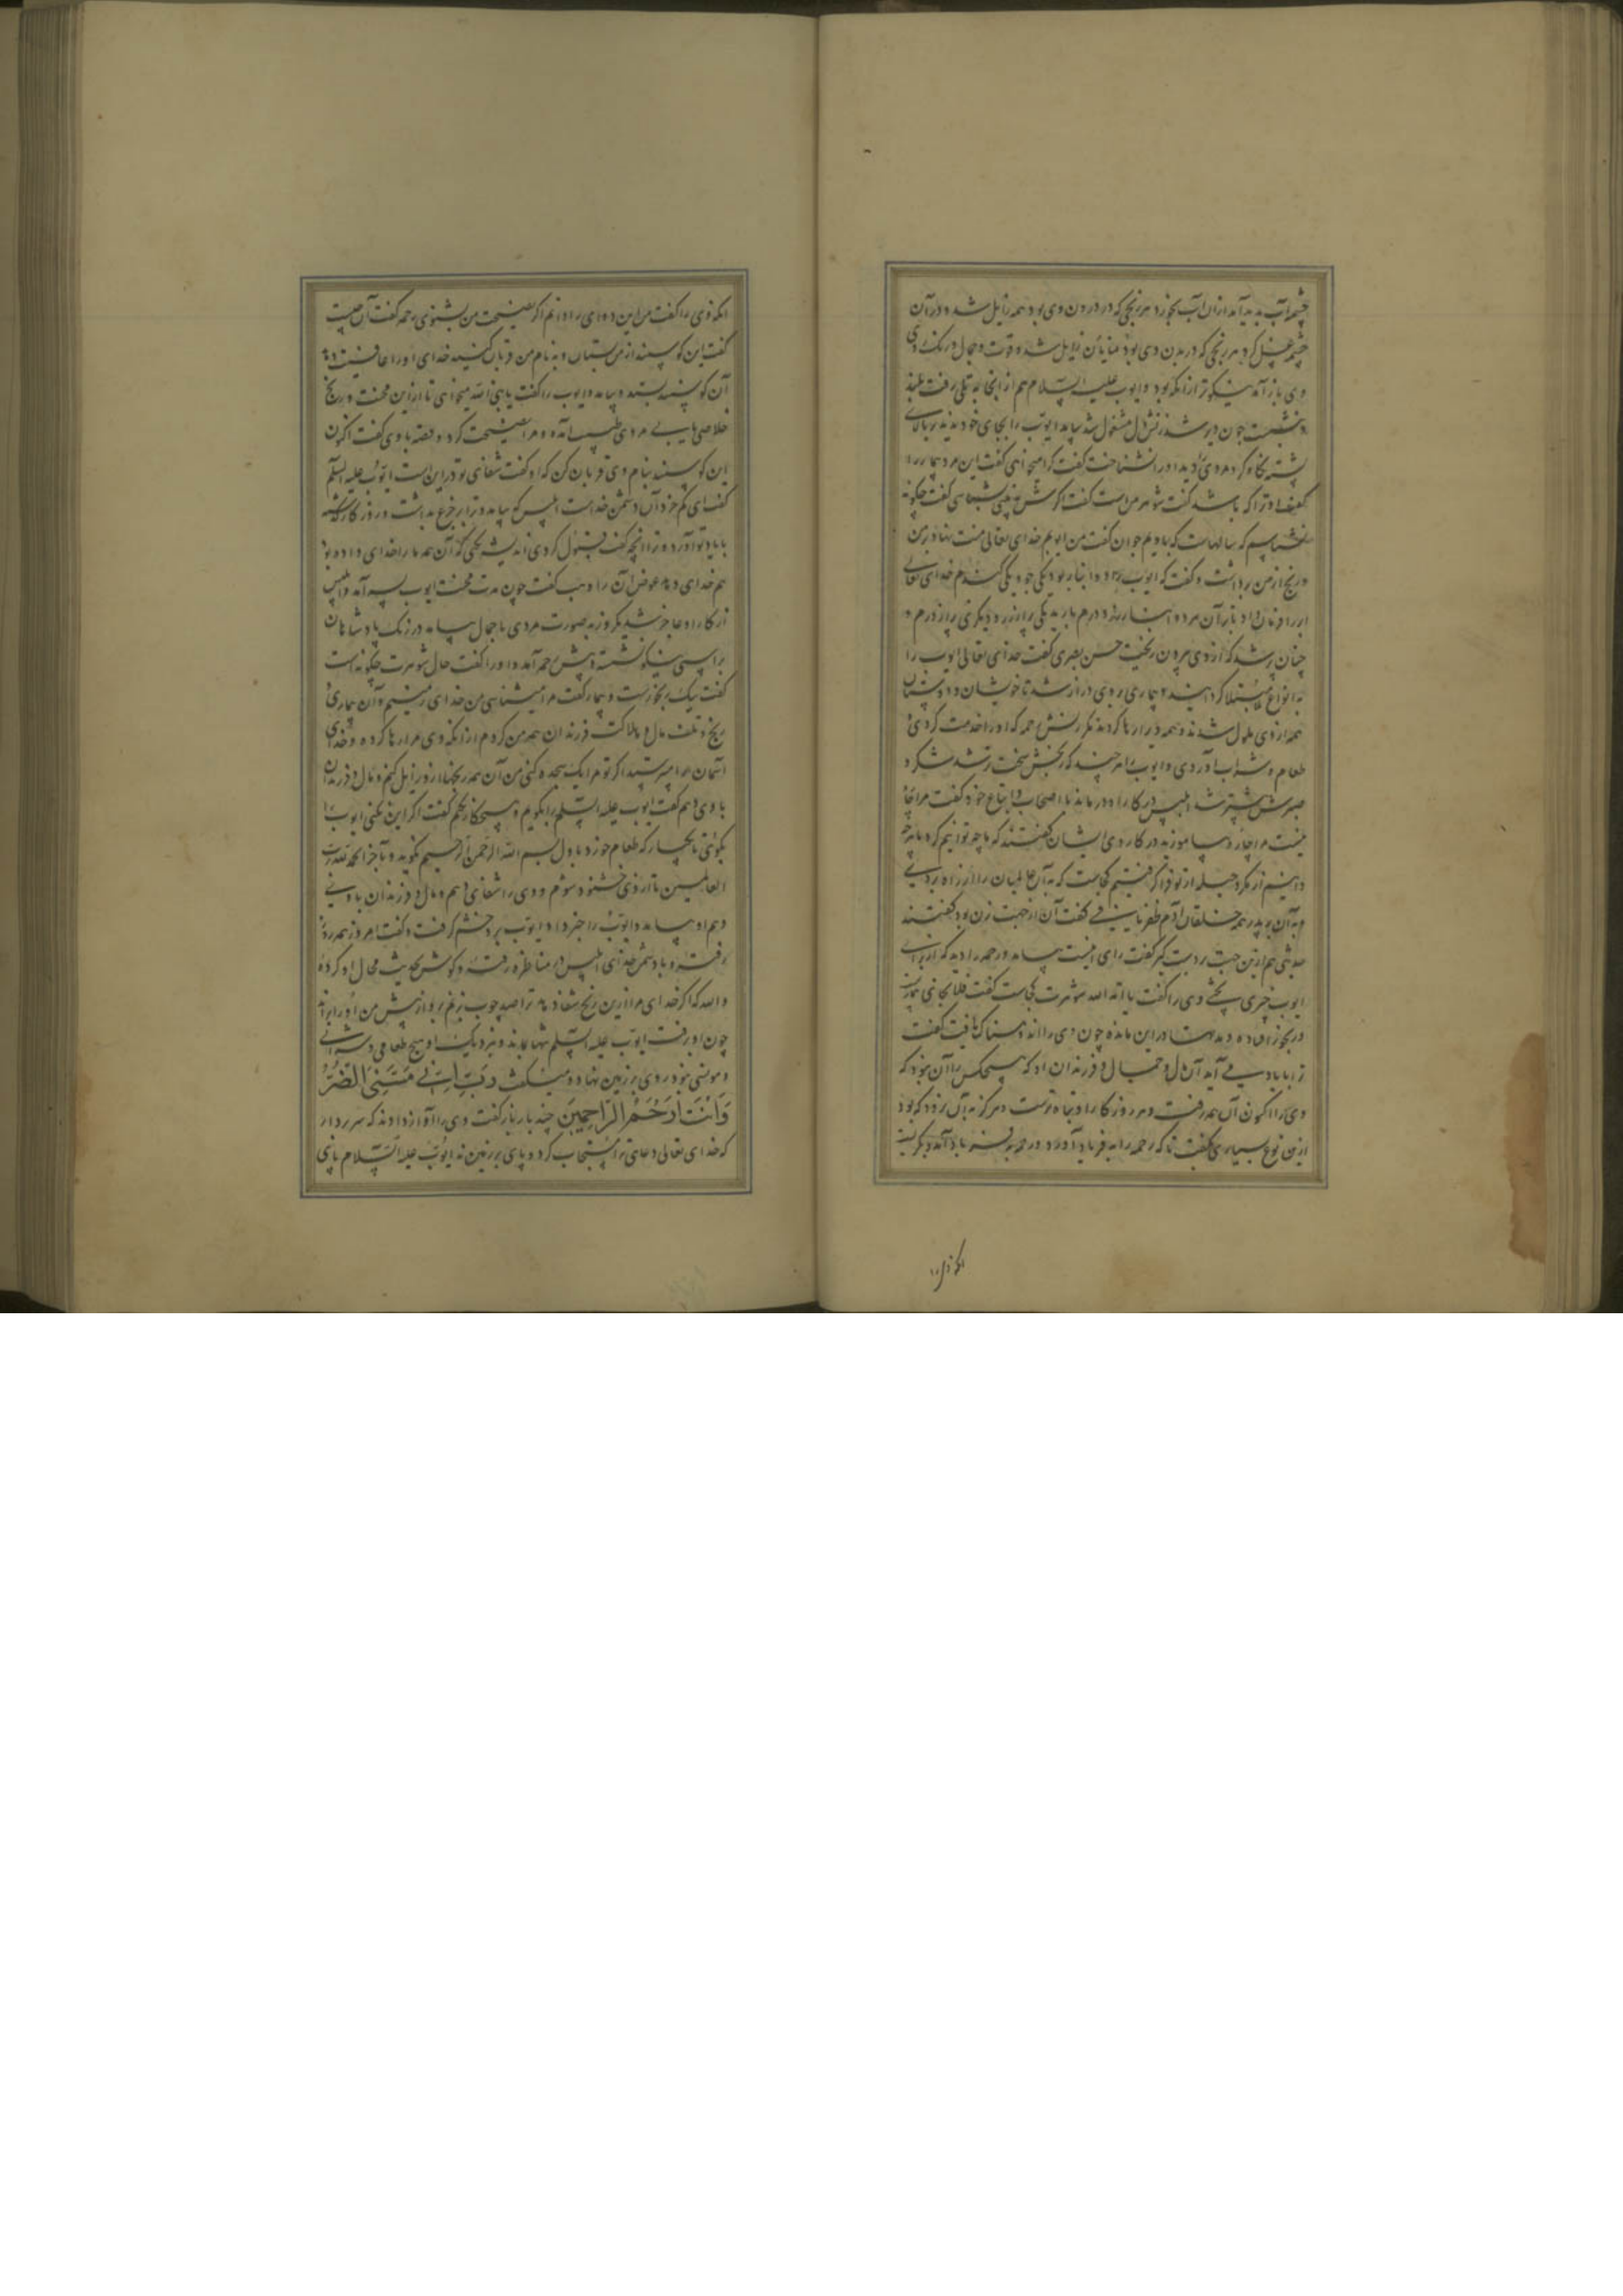 چشمه آب پدید آمد ازان آب بخورد هر رنجی که در درون وی بود همه زایل شد و در آن
چشمه غسل کرد هر رنجی که در بدن وی بود زایل شد و قوت و جمال و رنگ وی
وی باز آمد نیکوتر ازانکه بود و ایوب علیه السلام هم از انجا به تلی رفت بلند
و بنشست چون دیر شد زنش مشغول شد بیامد ایوب را بجای خود ندید بر بالای
پشته نگاه کرد مردی را دید او را نشناخت گفت کرا میخواهی گفت این مرد بیمار را
گفتا او ترا که باشد گفت شوهر من است گفت اگرش ببینی بشناسی گفت چگونه
نشناسم که سالهاست که با ویم جوان گفت من ایوبم خدای تعالی منت نهاد بر من
و رنج از من برداشت و گفت که ایوب را دو انبار بود یکی جو و یکی گندم خدای تعالی
ابر را فرمان داد تا بر آن هر دو انبار زر و درم بارید یکی پر از زر و دیگری پر از درم و
چنان پر شد که از وی بیرون ریخت حسن بصری گفت خدای تعالی ایوب را
به انواع بلا مبتلا گردانید و بیماری بر وی دراز شد تا خویشان و دوستان
همه از وی ملول شدند و همه ویرا رها کردند مگر زنش رحمه که او را خدمت کردی
طعام و شراب آوردی و ایوب را هر چند که رنجش سخت تر شد شکر و
صبرش بیشتر شد ابلیس در کار او درماند با اصحاب و اتباع خود گفت مرا چاره
نیست مرا چاره بیاموزید در کار وی ایشان گفتند که ما چه توانیم کرد ما هر چه
دانیم از مکر و حیله از تو فرا گرفتیم کجاست که به آن عالمیان را از راه بردی
و به آن بر پدر همه خلقان آدم ظفر یافتی گفت آن از جهت زن بود گفتند
تو نیز هم ازین جهت بدست گیر گفت رای اینست بیامد و رحمه را دید که از برای
ایوب چیزی پختی وی را گفت یا امة الله شوهرت کجاست گفت فلان جای بیمار
و رنجور افتاده و مدت در این مانده چون وی را اندوهناک یافت گفت
ترا یاد می آید آن مال و جمال و فرزندان او که هیچکس را آن نبود که
وی را اکنون آن همه رفت و هر روز کار او تباه ترست و هرگز به آن نرود که بود
ازین نوع بسیاری گفت تا که رحمه را به فریاد آورد و رحمه بگریست
انکه وی را
انکه وی را گفت من این را دوای دانم اگر نصیحت من بشنوی رحمه گفت آن چیست
گفت این گوسپند از من بستان و به نام من قربان کنید خدای او را عافیت دهد
آن گوسپند بستد و بیامد و ایوب را گفت یا نبی الله میخواهی تا ازین محنت و رنج
خلاصی یابی مردی طبیب آمد و مرا نصیحت کرد و قصه با وی گفت اکنون
این گوسپند بنام وی قربان کن که او گفت شفای تو در این است ایوب علیه السلام
گفت ای کم خرد آن دشمن خداست ابلیس که بیامد و ترا بر جزع بداشت و روزگار گذشته
با یاد تو آورد و ازو آنچه گفت قبول کردی اندیشه نکنی که آن همه ما را خدای داده بود
هم خدای دهد عوض آن وهب گفت چون مدت محنت ایوب بسر آمد و ابلیس
از کار او عاجز شد یکروز به صورت مردی با جمال بیامد در زی پادشاهان
بر اسپی نیکو نشسته و پیش رحمه آمد و او را گفت حال شوهرت چگونه است
گفت نیک رنجورست و بیمار گفت مرا میشناسی من خدای زمینم و آن بیماری
و رنج و تلف مال و هلاکت فرزندان همه من کردم ازانکه وی مرا رها کرده و خدای
آسمان را میپرستید اگر تو مرا یک سجده کنی من آن همه رنجها از و زایل کنم و مال و فرزندان
با وی دهم گفت ایوب علیه السلام را بگویم و بی حکم او نکنم گفت اگر این نکنی ایوب را
بگوی تا یکبار که طعام خورد باول بسم الله الرحمن الرحیم نگوید و بآخر الحمد لله رب
العالمین تا از وی خشنود شوم و وی را شفا دهم و مال و فرزندان با وی
دهم او بیامد و ایوب را خبر داد ایوب برو خشم گرفت و گفت امروز همه روز
رفته و با دشمن خدای ابلیس در مناظره رفته و گوش بحدیث محال او کرده
والله که اگر خدای مرا ازین رنج شفا دهد ترا صد چوب بزنم برو از پیش من او را براند
چون او برفت ایوب علیه السلام تنها بماند و نزدیک او هیچ طعامی و شرابی
و مونسی نبود روی بر زمین نهاد و میگفت رَبِّ اِنّی مَسَّنِیَ الضُّرُّ
وَاَنْتَ اَرْحَمُ الرَّاحِمِینَ چند بار باز گفت وی را آواز دادند که سر بردار
که خدای تعالی دعای ترا مستجاب کرد و پای بر زمین زن ایوب علیه السلام پای